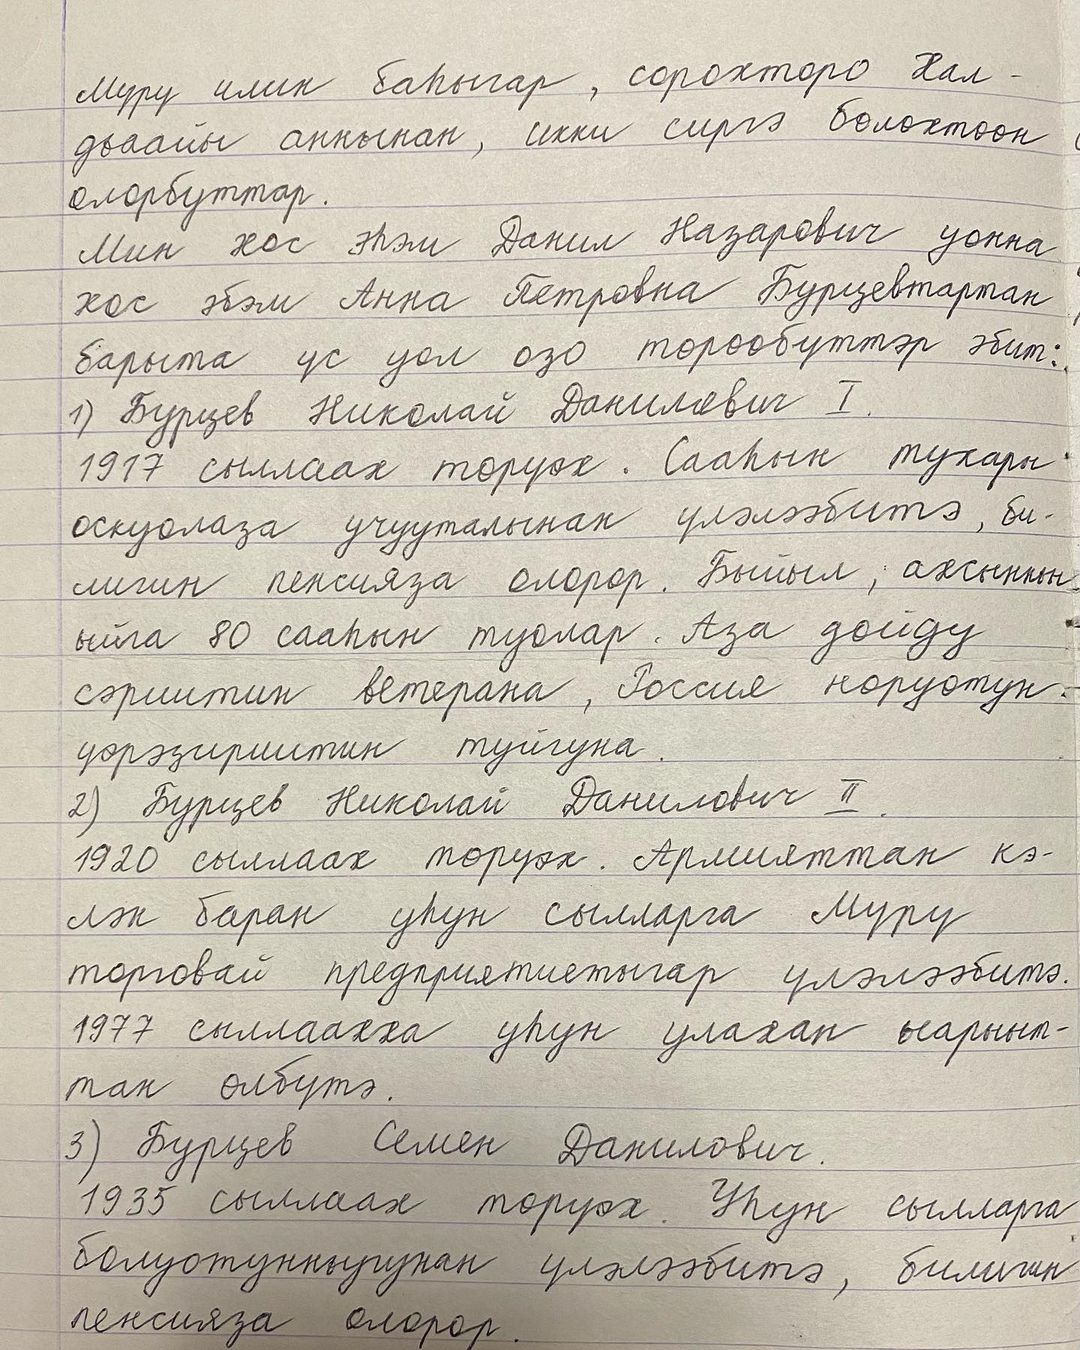 Муру илин баһыгар, сорохторо Хал-
дьаайы анныннан, икки сиргэ болохтоон
олорбуттар.
Мин хос эһэм Данил Назарович уонна
хос эбэм Анна Петровна Бурцевтартан
барыта ус уол озо торообуттэр эбит:
1) Бурцев Николай Данилович I.
1917 сыллаах торуох. Сааһын тухары
оскуолаза учууталынан улэлээбитэ, би-
лигин пенсияза олорор. Быйыл, ахсынньы
ыйга 80 сааһын туолар. Аза дойду
сэриитин ветерана, Россия норуотун
уорэзириитин туйгуна.
2) Бурцев Николай Данилович II.
1920 сыллаах торуох. Армияттан кэ-
лэн баран уһун сылларга Муру
торговай предприятиетыгар улэлээбитэ.
1977 сыллаахха уһун улахан ыарыыт-
тан олбутэ.
3) Бурцев Семен Данилович.
1935 сыллаах торуох. Уһун сылларга
болуотунньугунан улэлээбитэ, билигин
пенсияза олорор.